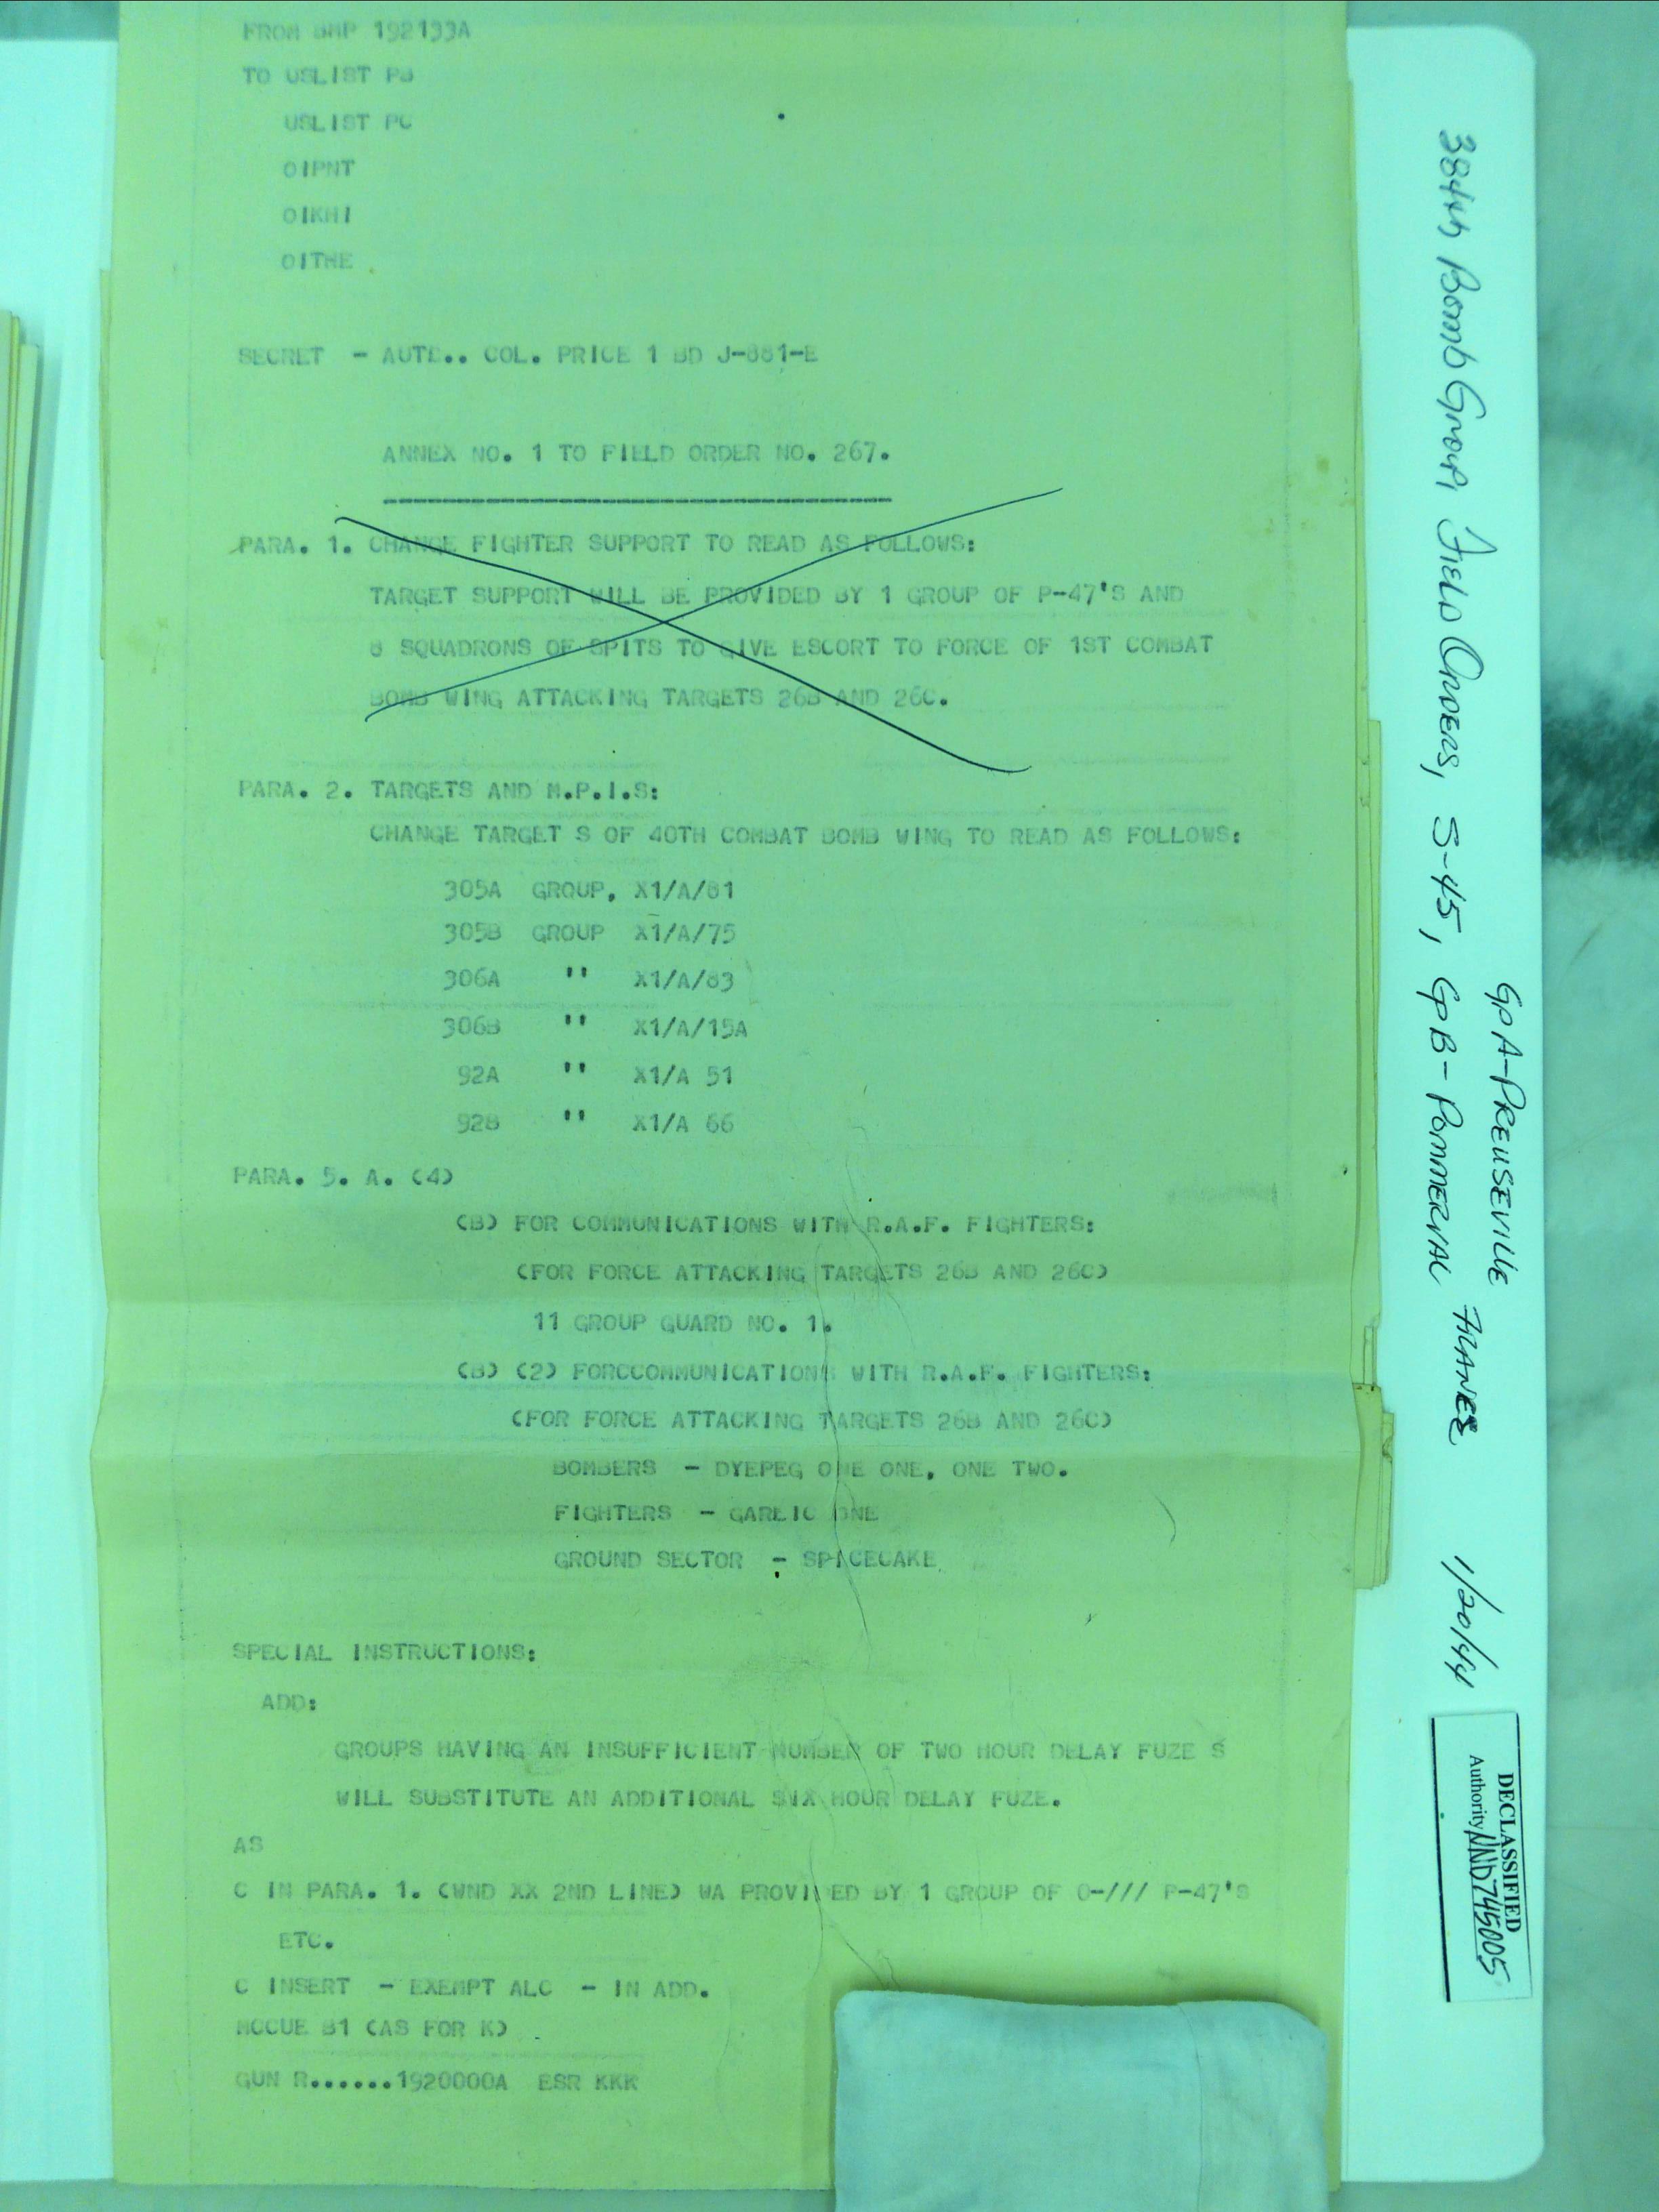 FROM BMP 192133A
TO USLIST PB
USLIST PC
OIPNT
OIKHI
OITHE
SECRET - AUTH.. COL. PRICE 1 BD J-881-E
ANNEX NO. 1 TO FIELD ORDER NO. 267.
--------------------------------
PARA. 1. CHANGE FIGHTER SUPPORT TO READ AS FOLLOWS:
TARGET SUPPORT WILL BE PROVIDED BY 1 GROUP OF P-47'S AND
8 SQUADRONS OF SPITS TO GIVE ESCORT TO FORCE OF 1ST COMBAT
BOMB WING ATTACKING TARGETS 26B AND 26C.
PARA. 2. TARGETS AND M.P.I.S:
CHANGE TARGET S OF 40TH COMBAT BOMB WING TO READ AS FOLLOWS:
305A GROUP, X1/A/81
305B GROUP X1/A/75
306A " X1/A/83
306B " X1/A/15A
92A " X1/A 51
92B " X1/A 66
PARA. 5. A. (4)
(B) FOR COMMUNICATIONS WITH R.A.F. FIGHTERS:
(FOR FORCE ATTACKING TARGETS 26B AND 26C)
11 GROUP GUARD NO. 1.
(B) (2) FORCCOMMUNICATIONS WITH R.A.F. FIGHTERS:
(FOR FORCE ATTACKING TARGETS 26B AND 26C)
BOMBERS - DYEPEG ONE ONE, ONE TWO.
FIGHTERS - GARLIC ONE
GROUND SECTOR - SPICECAKE
SPECIAL INSTRUCTIONS:
ADD:
GROUPS HAVING AN INSUFFICIENT NUMBER OF TWO HOUR DELAY FUZE S
WILL SUBSTITUTE AN ADDITIONAL SIX HOUR DELAY FUZE.
AS
C IN PARA. 1. (WND XX 2ND LINE) WA PROVIDED BY 1 GROUP OF 0-/// P-47'S
ETC.
C INSERT - EXEMPT ALC - IN ADD.
MCCUE B1 (AS FOR K)
GUN R......1920000A ESR KKK
384th Bomb Group, Field Orders, S-45, GpB- POMMERVAL
GpA-PREUSEVILLE FRANCE 1/20/44
DECLASSIFIED
Authority NND745005